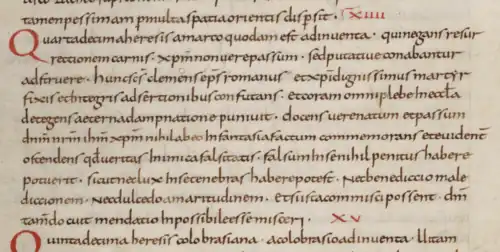 tamen pessimam p multa spatia orientis dispersit · XIIII
Quartadecima heresis a marco quodam est adinventa · qui negans resur
rectionem carnis · xpm non vere passum · sed putative conabantur
adstruere · hunc scs clemens eps romanus et xpi dignissimus martyr
fixis et integris adsertionibus confutans · et coram omni plebe in eccla
detegens aeterna dampnatione punivit · docens vere natum et passum
dnm nrm ihm xpm nihil ab eo in fantasia factum commemorans et evident
ostendens qd veritas inimica falsitatis · falsum in se nihil penitus habere
potuerit · sicut nec lux in se tenebras habere potest · Nec benedictio male
dictionem · nec dulcedo amaritudinem · et si usta commisci possent · dm
tam docuit mendatio impossibile esse misceri · XV
Quintadecima heresis colobrasiana · a colobraso adinventa · Ut tam